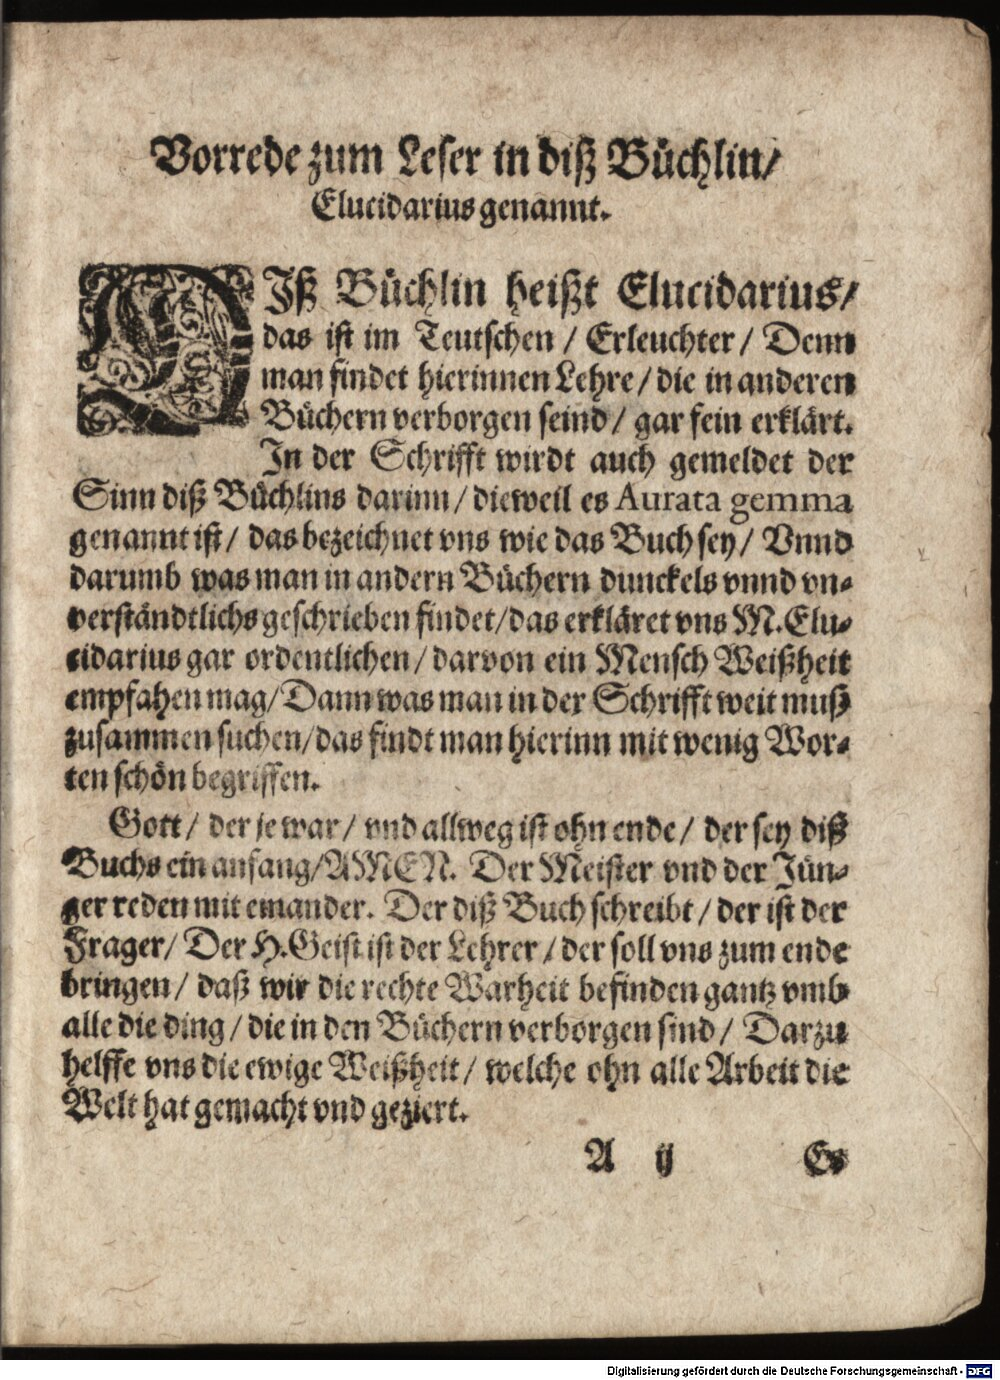 Vorrede zum Leser in diß Büchlin/
Elucidarius genannt.
DIß Büchlin heißt Elucidarius/
das ist im Teutschen / Erleuchter / Denn
man findet hierinnen Lehre / die in anderen
Büchern verborgen seind / gar fein erklärt.
In der Schrifft wirdt auch gemeldet der
Sinn diß Büchlins darinn / dieweil es Aurata gemma
genannt ist / das bezeichnet vns wie das Buch sey / Vnnd
darumb was man in andern Büchern dunckels vnnd vn-
verständtlichs geschrieben findet/das erkläret vns M. Elu-
cidarius gar ordentlichen / darvon ein Mensch Weißheit
empfahen mag/ Dann was man in der Schrifft weit muß
zusammen suchen/das findt man hierinn mit wenig Wor-
ten schön begriffen.
Gott / der je war / vnd allweg ist ohn ende / der sey diß
Buchs ein anfang/AMEN. Der Meister vnd der Jün-
ger reden mit einander. Der diß Buch schreibt / der ist der
Frager/ Der H. Geist ist der Lehrer / der soll vns zum ende
bringen / daß wir die rechte Warheit befinden gantz vmb
alle die ding / die in den Büchern verborgen sind / Darzu
helffe vns die ewige Weißheit / welche ohn alle Arbeit die
Welt hat gemacht vnd geziert.
A ij Es
Digitalisierung gefördert durch die Deutsche Forschungsgemeinschaft - DFG